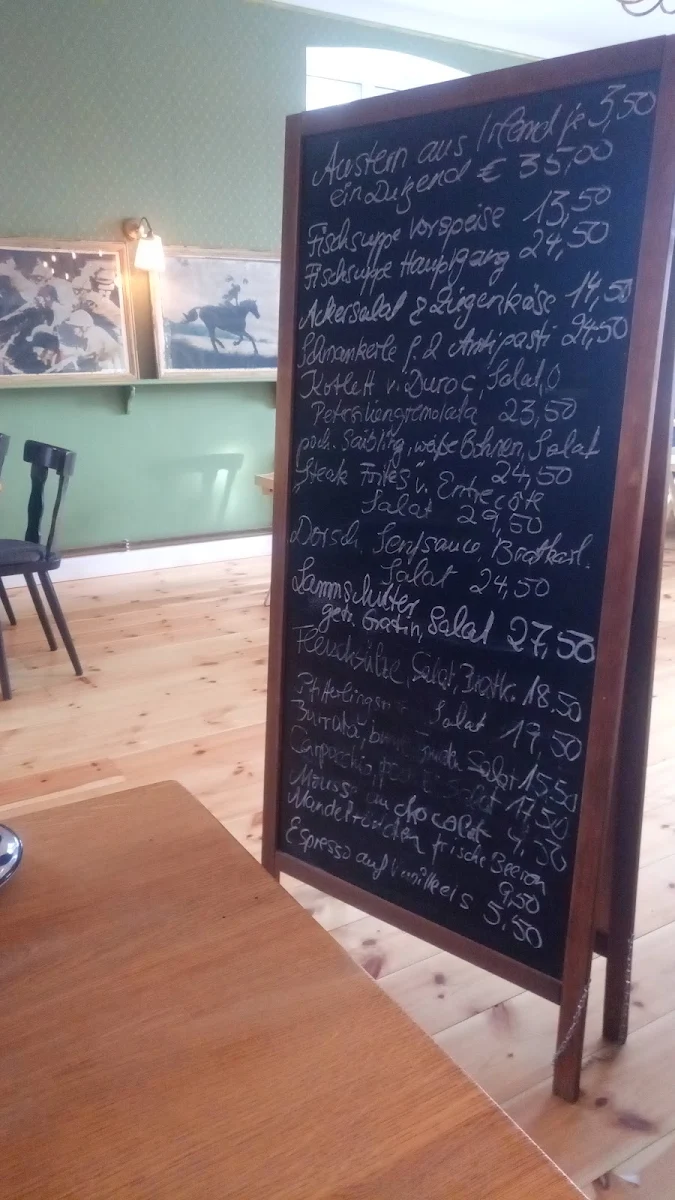 Austern aus Irland je 3,50
ein Duzend € 35,00
Fischsuppe Vorspeise 13,50
Fischsuppe Hauptgang 24,50
Ackersalat & Ziegenkäse 14,50
Schmankerle f. 2 Antipasti 24,50
Kotlett v. Duroc, Salat,
Petersiliengremolata 23,50
poch. Saibling, weiße Bohnen, Salat
24,50
"Steak Frites" v. Entrecôte
Salat 29,50
Dorsch, Senfsauce Bratkart.
Salat 24,50
Lammschulter, Salat 27,50
geb. Gratin,
Fleischsülze, Salat, Bratk. 18.50
Salat 19,50
Burrata, Salat 15,50
Carpaccio, 17,50
Mousse au chocolat 4,50
frische Beeren
9,50
Espresso auf Vanilleeis 5,50